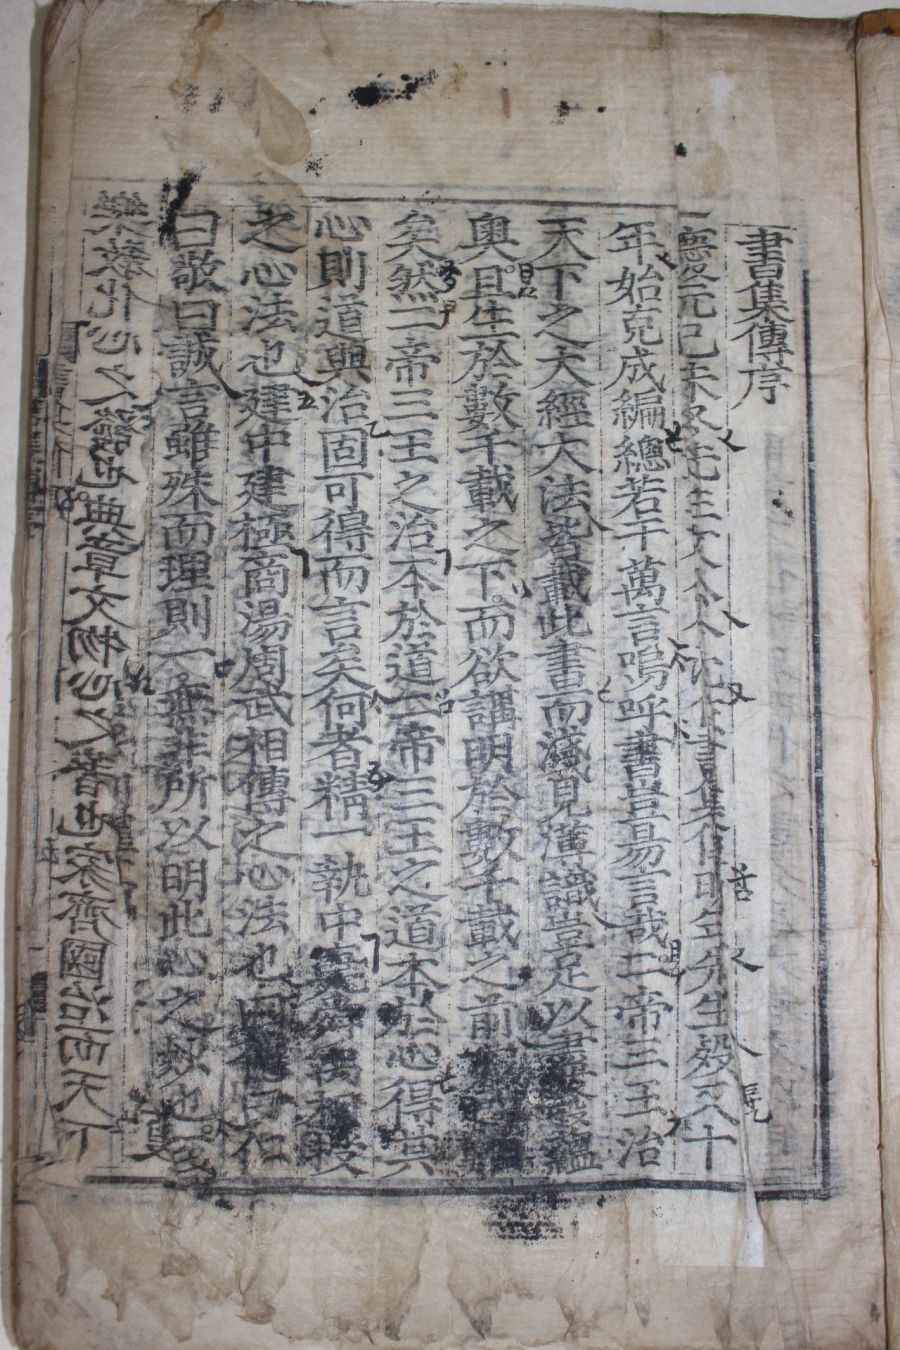 書集傳序
慶元己未冬先生文公令沈作書集傳明年先生歿又十
年始克成編總若干萬言嗚呼書豈易言哉二帝三王治
天下之大經大法皆載此書而淺見薄識豈足以盡發蘊
奧且生於數千載之下而欲講明於數千載之前
矣然二帝三王之治本於道二帝三王之道本於心得其
心則道與治固可得而言矣何者精一執中堯舜禹相授
之心法也建中建極商湯周武相傳之心法也曰德曰仁
曰敬曰誠言雖殊而理則一無非所以明此心之妙也
典章文物心之著也家齊國治而天下